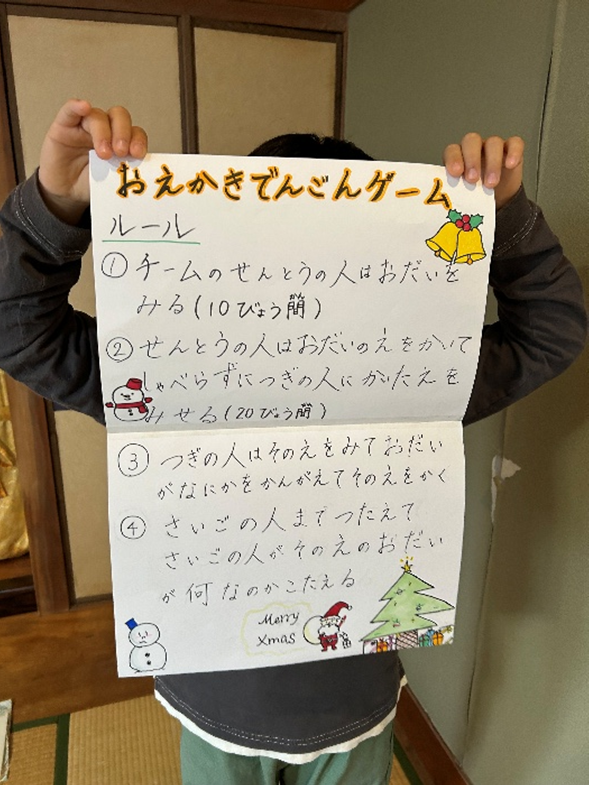 おえかきでんごんゲーム
ルール
① チームのせんとうの人はおだいを
みる(10びょう簡)
② せんとうの人はおだいのえをかいて
しゃべらずにつぎの人にかいたえを
みせる(20びょう簡)
③ つぎの人はそのえをみておだい
がなにかをかんがえてそのえをかく
④ さいごの人までつたえて
さいごの人がそのえのおだい
が何なのかこたえる
Merry
Xmas